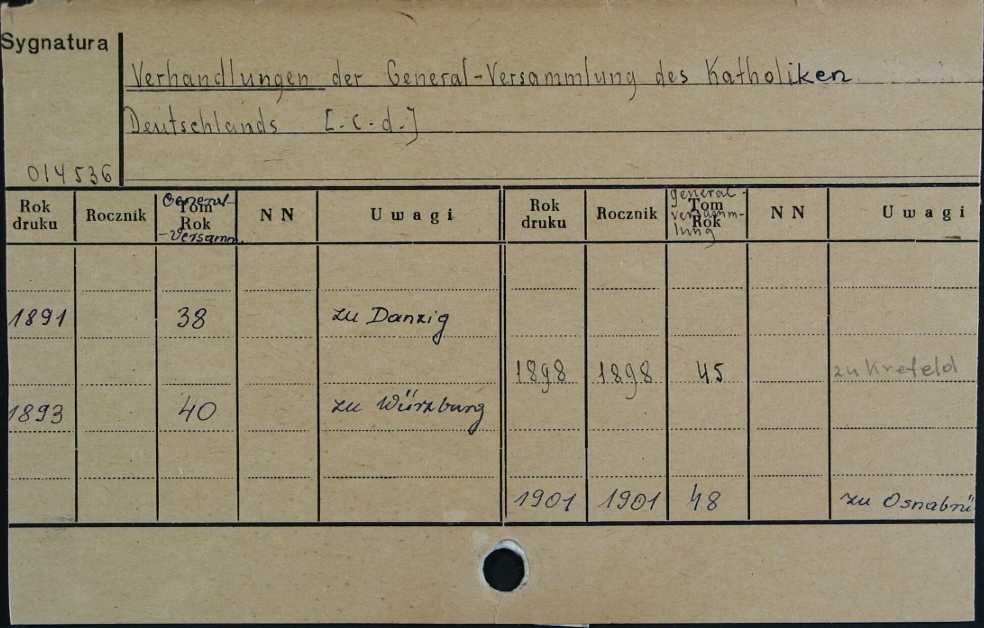 Sygnatura
Verhandlungen der General-Versammlung des Katholiken
Deutschlands [.c.d.]
014536
Rok druku Rocznik General Tom Rok -Versamm. NN Uwagi Rok druku Rocznik general- Tom versamm- Rok lung NN Uwagi
1891 38 zu Danzig
1898 1898 45 zu Krefeld
1893 40 zu Würzburg
1901 1901 48 zu Osnabrü